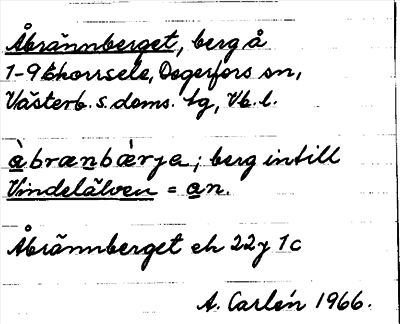 Åbrännberget, berg å
1-9 Ekorrsele, Degerfors sn,
Västerb. s. doms. tg, Vb. l.
àbrænbæ̀rjə; berg intill
Vindelälven = an.
Åbrännberget ek 22y 1c
A. Carlén 1966.